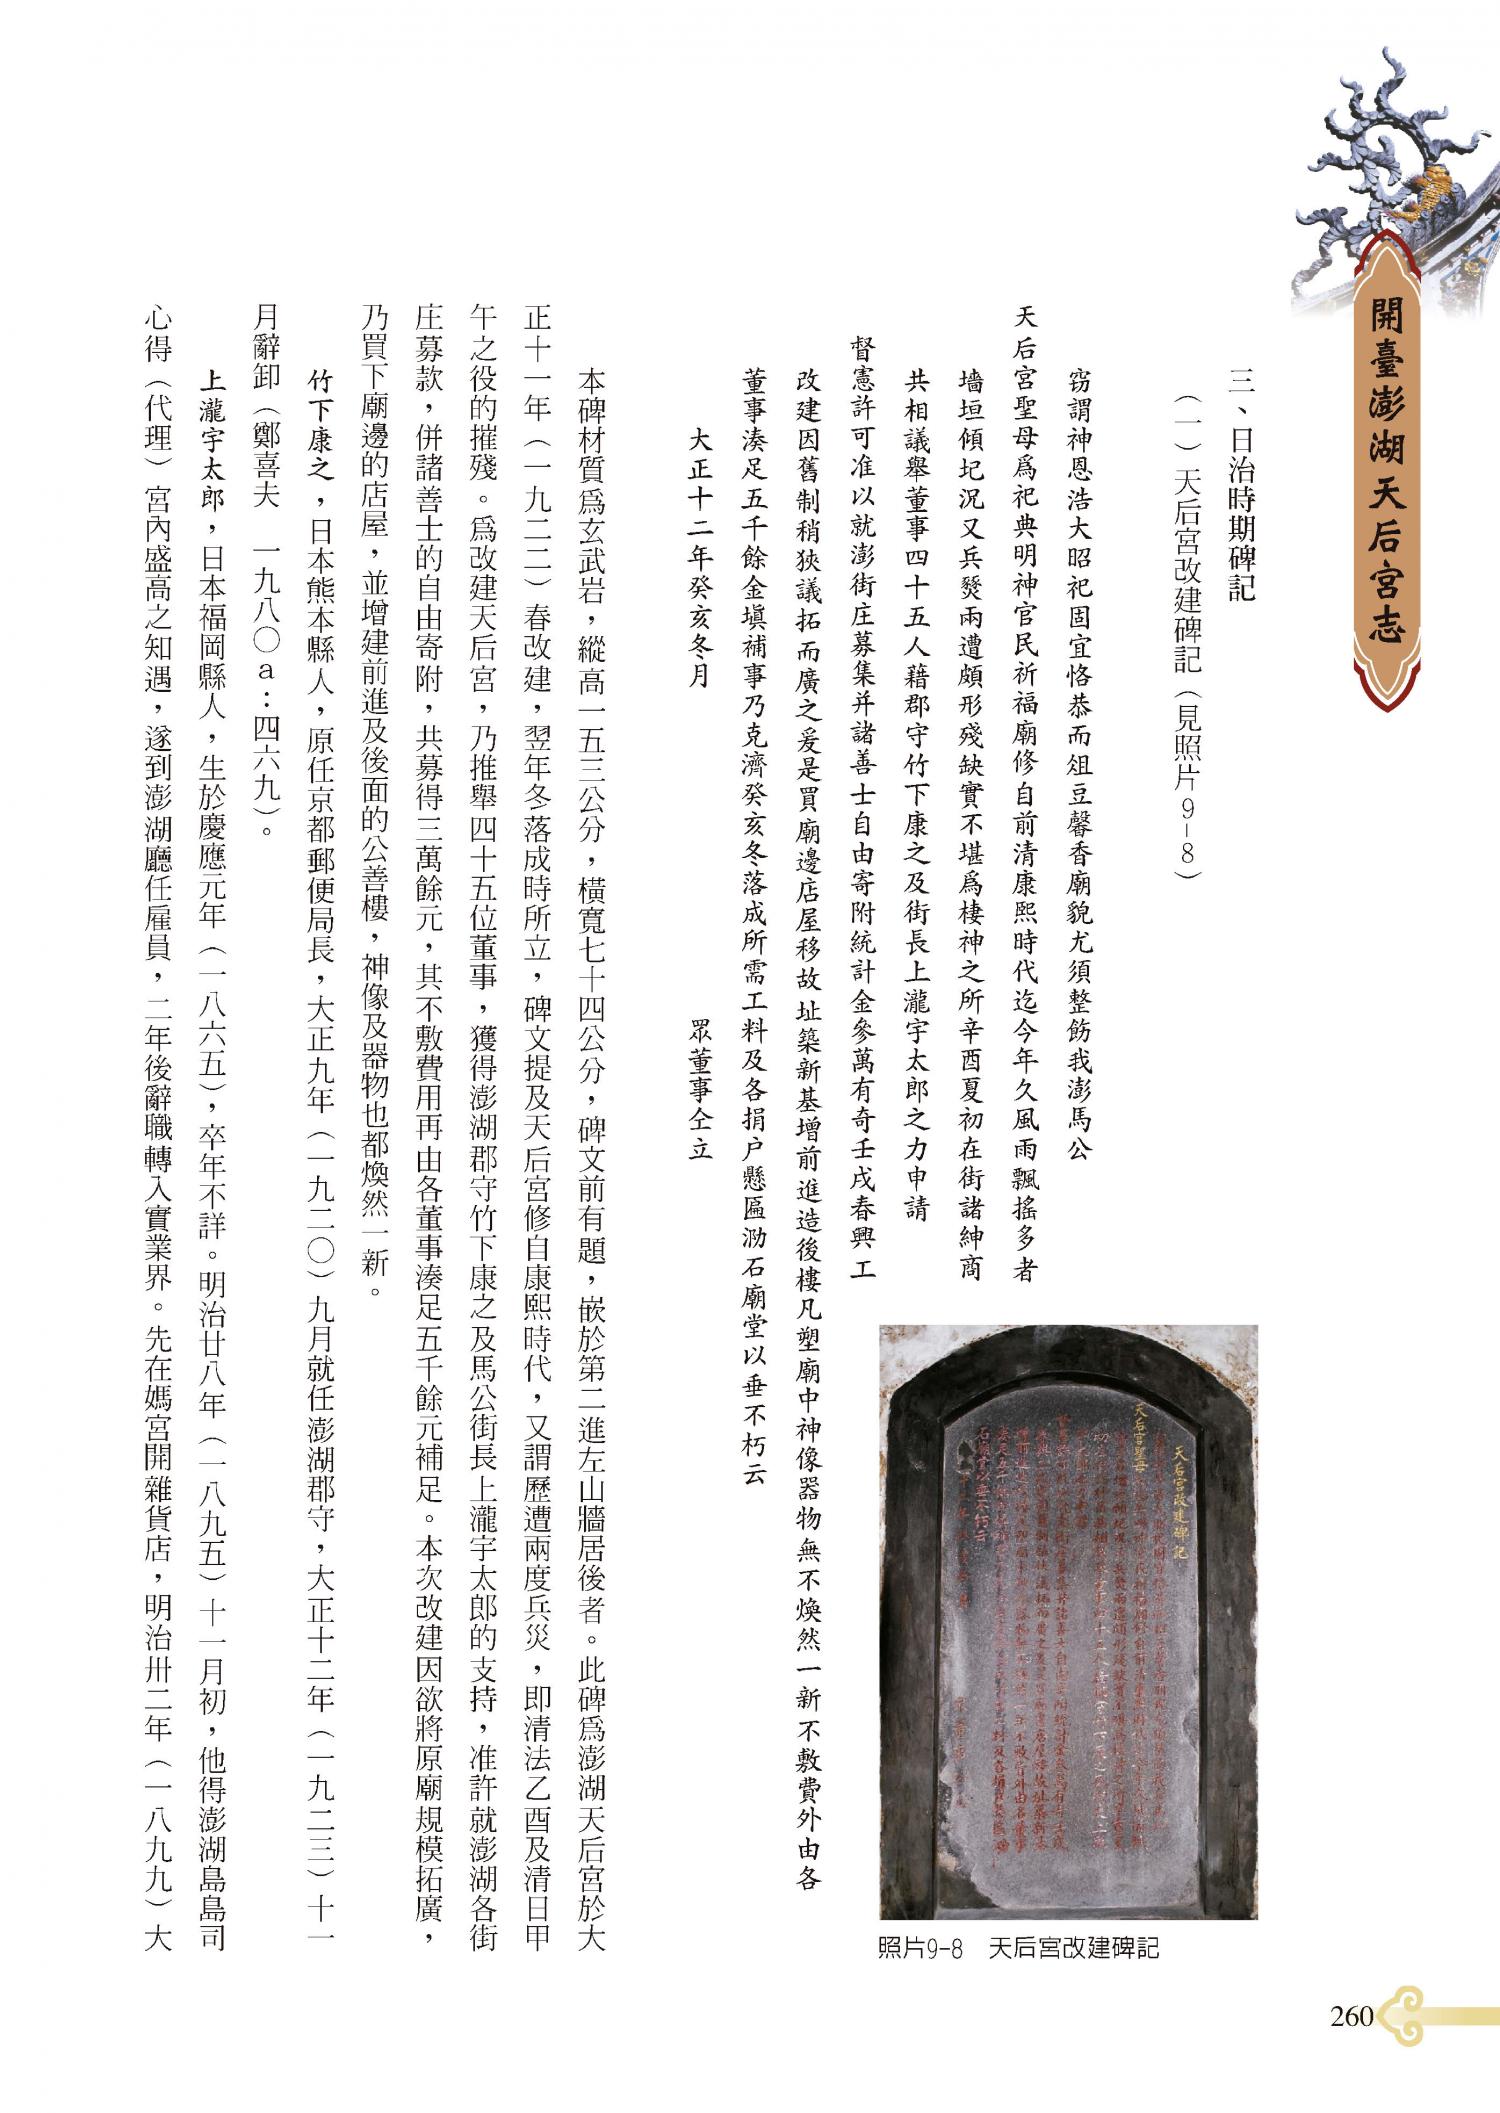 開臺澎湖天后宮志
三、日治時期碑記
（一）天后宮改建碑記（見照片9-8）
竊謂神恩浩大昭祀固宜恪恭而俎豆馨香廟貌尤須整飭我澎馬公
天后宮聖母為祀典明神官民祈福廟修自前清康熙時代迄今年久風雨飄搖多者
墻垣傾圮況又兵燹兩遭頗形殘缺實不堪為棲神之所辛酉夏初在街諸紳商
共相議舉董事四十五人藉郡守竹下康之及街長上瀧宇太郎之力申請
督憲許可准以就澎街庄募集并諸善士自由寄附統計金參萬有奇壬戌春興工
改建因舊制稍狹議拓而廣之爰是買廟邊店屋移故址築新基增前進造後樓凡塑廟中神像器物無不煥然一新不敷費外由各
董事湊足五千餘金塡補事乃克濟癸亥冬落成所需工料及各捐户懸匾泐石廟堂以垂不朽云
大正十二年癸亥冬月　眾董事仝立
本碑材質為玄武岩，縱高一五三公分，橫寬七十四公分，碑文前有題，嵌於第二進左山牆居後者。此碑為澎湖天后宮於大
正十一年（一九二二）春改建，翌年冬落成時所立，碑文提及天后宮修自康熙時代，又謂歷遭兩度兵災，即清法乙酉及清日甲
午之役的摧殘。為改建天后宮，乃推舉四十五位董事，獲得澎湖郡守竹下康之及馬公街長上瀧宇太郎的支持，准許就澎湖各街
庄募款，併諸善士的自由寄附，共募得三萬餘元，其不敷費用再由各董事湊足五千餘元補足。本次改建因欲將原廟規模拓廣，
乃買下廟邊的店屋，並增建前進及後面的公善樓，神像及器物也都煥然一新。
竹下康之，日本熊本縣人，原任京都郵便局長，大正九年（一九二〇）九月就任澎湖郡守，大正十二年（一九二三）十一
月辭卸（鄭喜夫　一九八〇a：四六九）。
上瀧宇太郎，日本福岡縣人，生於慶應元年（一八六五），卒年不詳。明治廿八年（一八九五）十一月初，他得澎湖島島司
心得（代理）宮內盛高之知遇，遂到澎湖廳任雇員，二年後辭職轉入實業界。先在媽宮開雜貨店，明治卅二年（一八九九）大
天后宮改建碑記
天后宮聖母
照片9-8　天后宮改建碑記
260